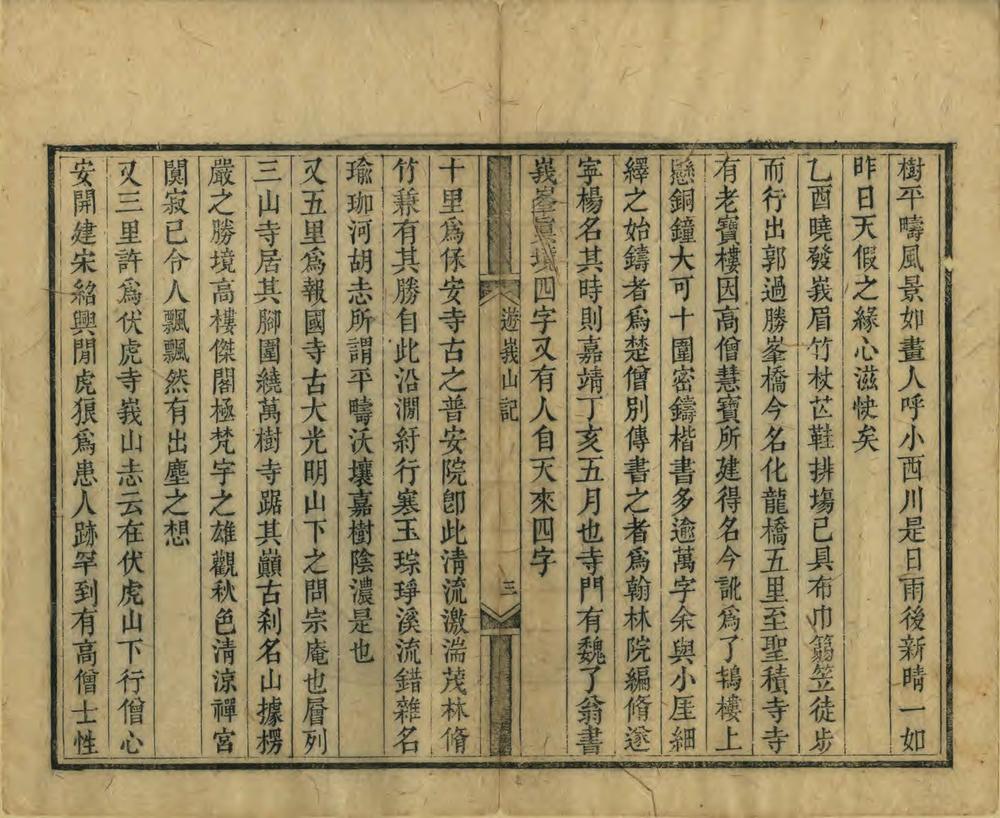 樹平疇風景如畫人呼小西川是日雨後新晴一如
昨日天假之緣心滋快矣
乙酉曉發峩眉竹杖芒鞋排塲已具布巾篛笠徒步
而行出郭過勝峯橋今名化龍橋五里至聖積寺寺
有老寶樓因高僧慧寶所建得名今訛爲了鴇樓上
懸銅鐘大可十圍密鑄楷書多逾萬字余與小厓細
繹之始鑄者爲楚僧別傳書之者爲翰林院編脩遂
寧楊名其時則嘉靖丁亥五月也寺門有魏了翁書
峩峯眞境四字又有人自天來四字
遊峩山記
三
十里爲保安寺古之普安院卽此清流激湍茂林脩
竹兼有其勝自此沿澗紆行寒玉琮琤溪流錯雜名
瑜珈河胡志所謂平疇沃壤嘉樹陰濃是也
又五里爲報國寺古大光明山下之問宗庵也層列
三山寺居其腳圍繞萬樹寺踞其巔古刹名山據楞
嚴之勝境高樓傑閣極梵字之雄觀秋色清涼禪宮
闃寂已令人飄飄然有出塵之想
又三里許爲伏虎寺峩山志云在伏虎山下行僧心
安開建宋紹興閒虎狼爲患人跡罕到有高僧士性